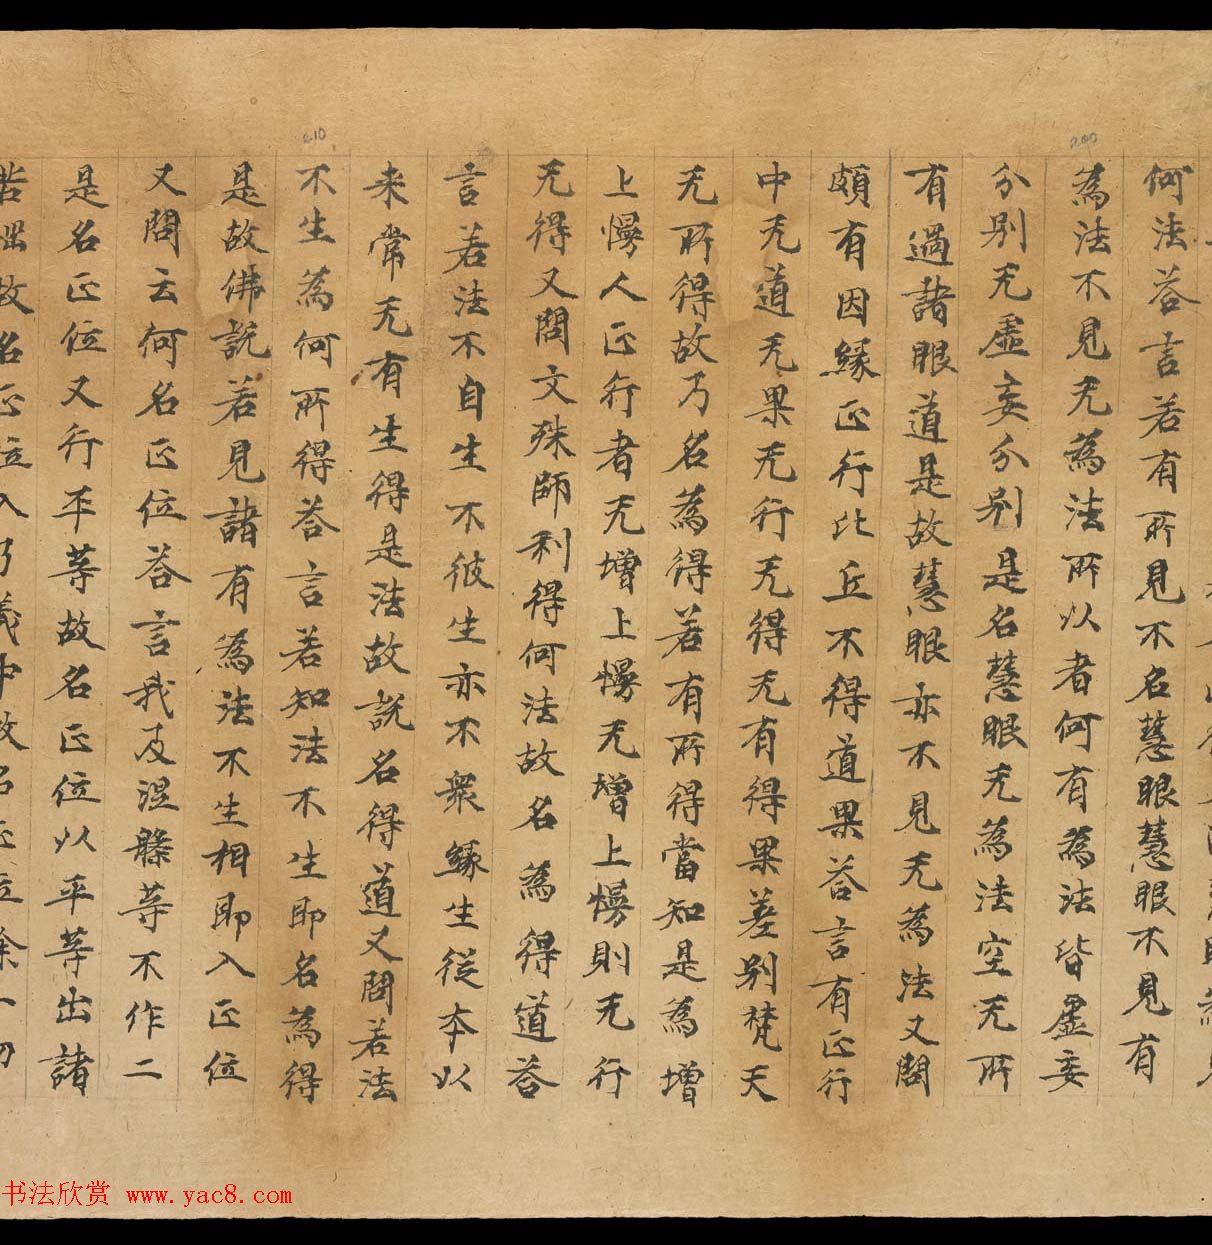 何法荅言若有所見不名慧眼慧眼不見有
為法不見无為法所以者何有為法皆虛妄
分別无虛妄分別是名慧眼无為法空无所
有過諸眼道是故慧眼亦不見无為法又問
頗有因緣正行比丘不得道果荅言有正行
中无道无果无行无得无有得果差別梵天
无所得故乃名為得若有所得當知是為增
上慢人正行者无增上慢无增上慢則无行
无得又問文殊師利得何法故名為得道荅
言若法不自生不彼生亦不衆緣生從本以
来常无有生得是法故説名得道又問若法
不生為何所得荅言若知法不生即名為得
是故佛説若見諸有為法不生相即入正位
又問云何名正位荅言我及涅槃等不作二
是名正位又行平等故名正位以平等出諸
苦出故名正位入了義中故名正位除一切
200
210
书法欣赏 www.yac8.com